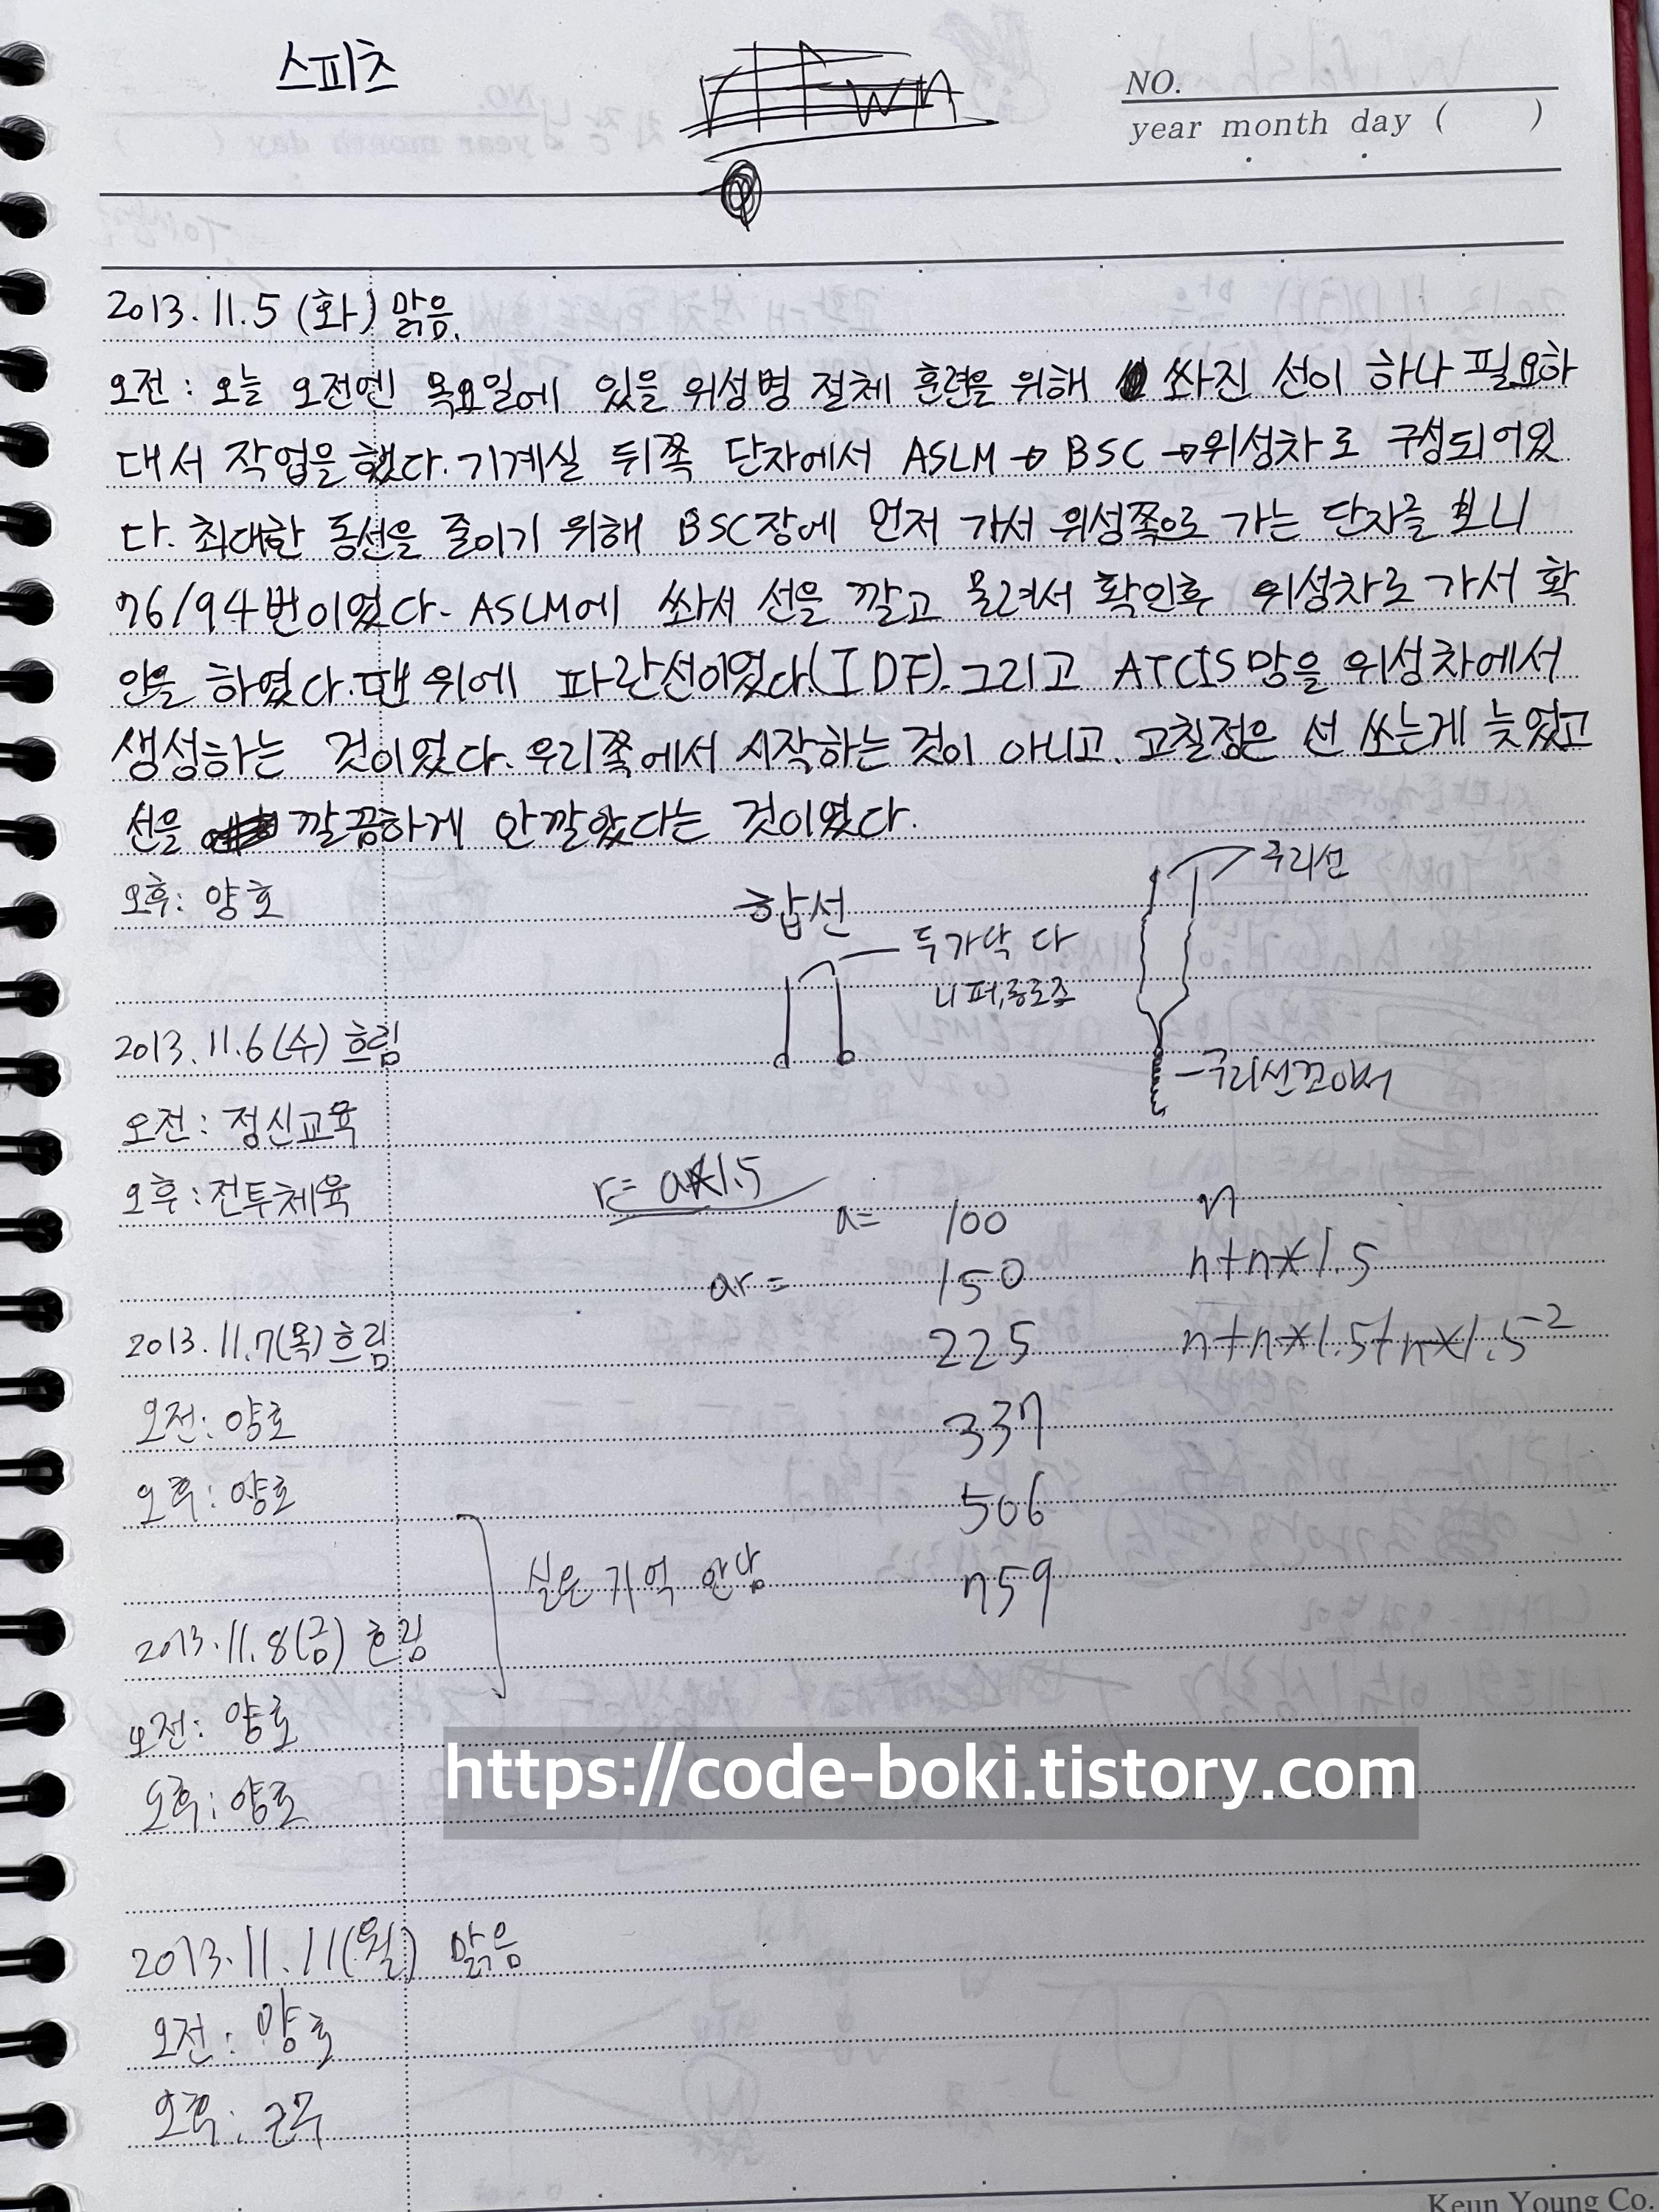 스피츠
NO.
year month day ( )
2013. 11. 5 (화) 맑음.
오전 : 오늘 오전엔 목요일에 있을 위성병 절체 훈련을 위해 쏴진 선이 하나 필요하
대서 작업을 했다. 기계실 뒤쪽 단자에서 ASLM → BSC → 위성차로 구성되어있
다. 최대한 동선을 줄이기 위해 BSC장에 먼저 가서 위성쪽으로 가는 단자를 보니
76/94번이였다. ASLM에 쏴서 선을 깔고 물려서 확인후 위성차로 가서 확
인을 하였다. 맨 위에 파란선이였다.(IDF). 그리고 ATCIS망을 위성차에서
생성하는 것이였다. 우리쪽에서 시작하는 것이 아니고. 고칠점은 선 쏘는게 늦었고
선을 깔끔하게 안깔았다는 것이였다.
오후: 양호
합선
두가닥 다
니퍼,롱로즈
구리선
구리선꼬아서
2013. 11. 6 (수) 흐림
오전 : 정신교육
오후 : 전투체육
r= a*1.5
a= 100
n
ar= 150
n+n*1.5
2013. 11. 7(목) 흐림
225
n+n*1.5+n*1.5^2
오전: 양호
337
오후: 양호
506
실은 기억 안남
759
2013. 11. 8(금) 흐림
오전: 양호
오후: 양호
https://code-boki.tistory.com
2013. 11. 11(월) 맑음
오전 : 양호
오후 : 근무
Keun Young Co.